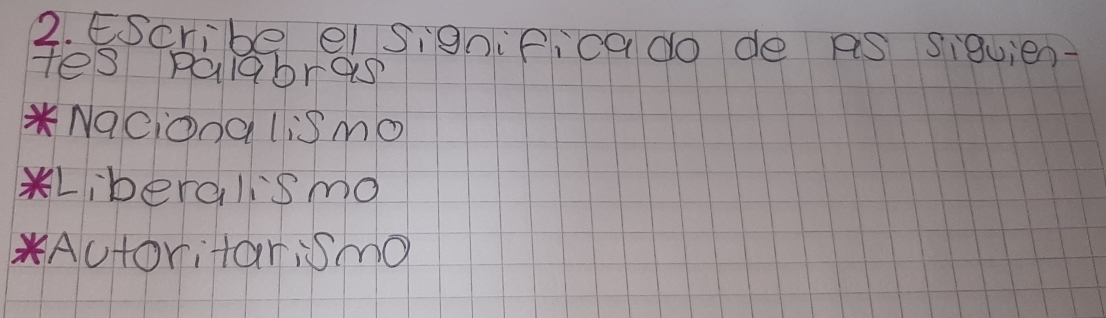 2. Escribe el significado de as siguien-
tes palabras
* Nacionalismo
* Liberalismo
* Autoritarismo